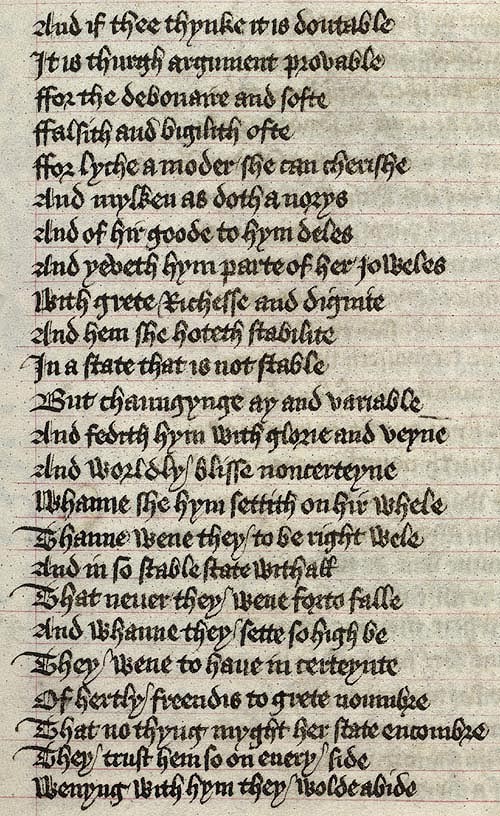 And if thee thynke it is doutable
It is thurgh argument provable
ffor the debonaire and softe
ffalsith and bigilith ofte
ffor lyche a moder she can cherishe
And mylken as doth a norys
And of hir goode to hym deles
And yeveth hym parte of her joweles
With grete Richesse and dignite
And hem she hoteth stabilite
In a state that is not stable
But chaungynge ay and variable
And fedith hym with glorie and veyne
And worldly blisse noncerteyne
Whanne she hym settith on hir whele
Thanne wene they to be right wele
And in so stable state withall
That never they wene forto falle
And whanne they sette so high be
They wene to have in certeynte
Of hertly freendis to grete noumbre
That no thyng myght her state encombre
They trust hem so on every side
Wenyng with hym they wolde abide